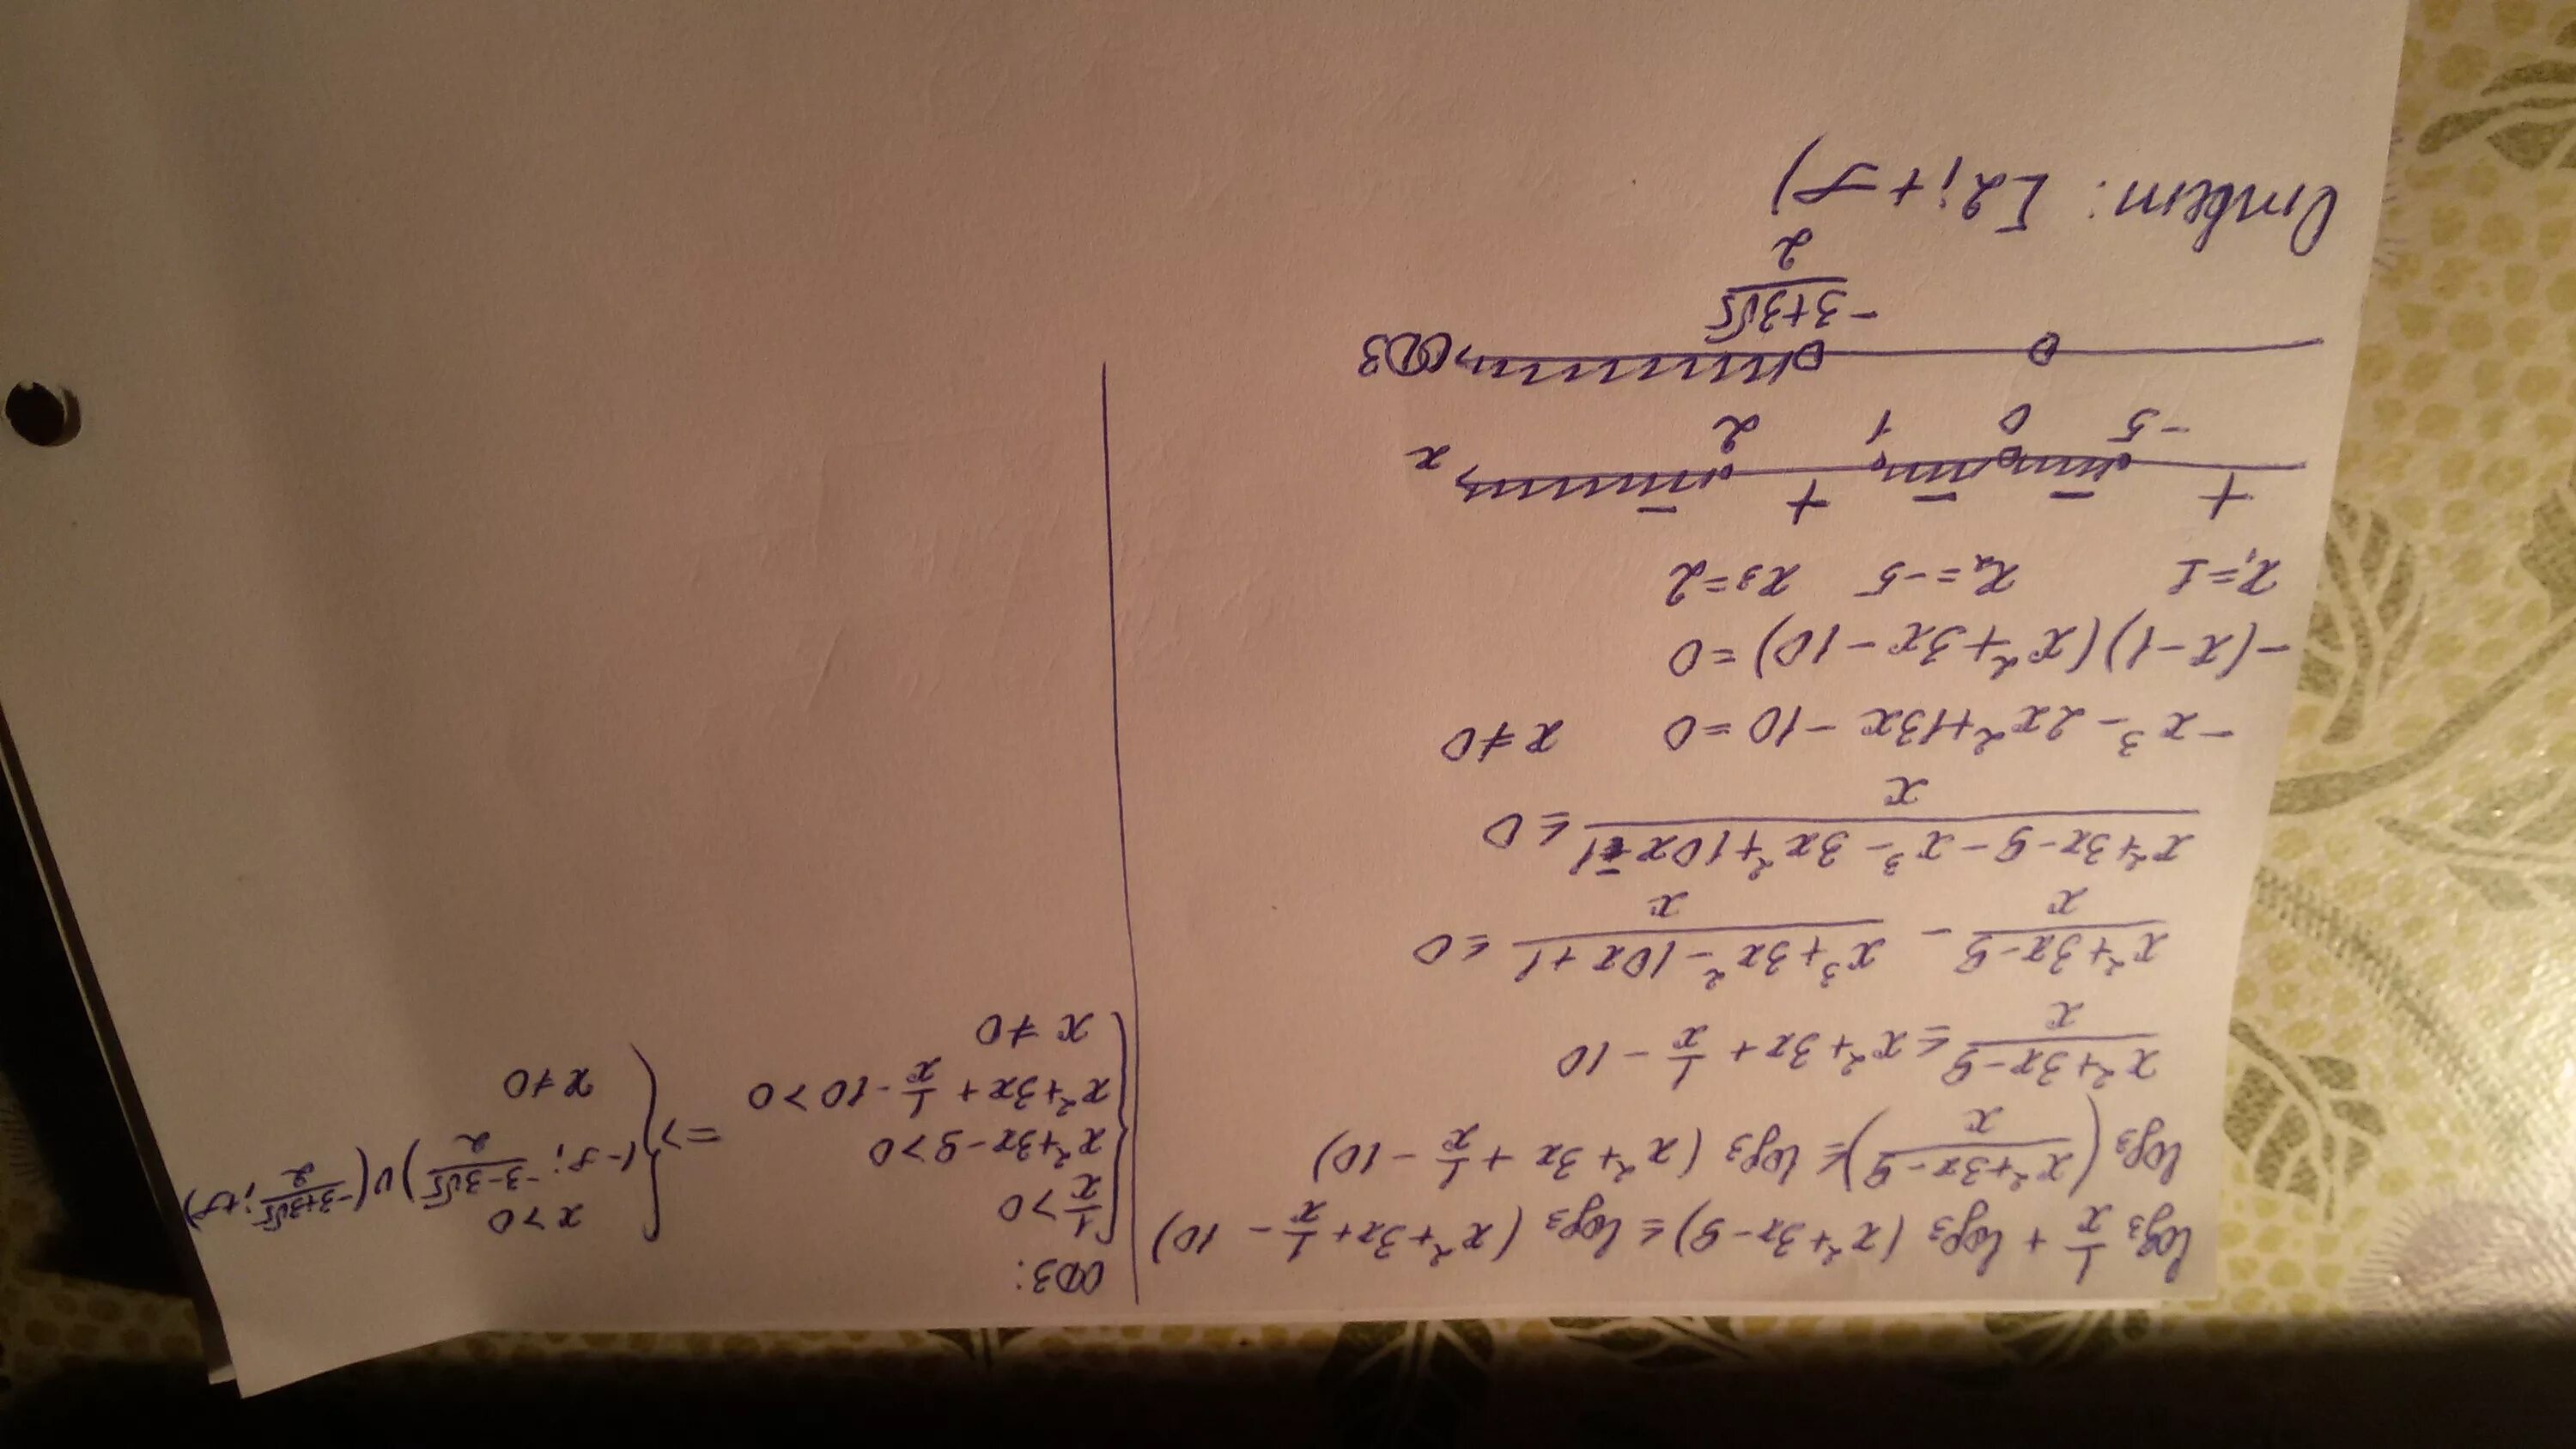 log₃ 1/x + log₃ (x²+3x-9) ≤ log₃ (x²+3x+1/x - 10)
log₃ ((x²+3x-9)/x) ≤ log₃ (x²+3x + 1/x - 10)
(x²+3x-9)/x ≤ x²+3x+ 1/x - 10
(x²+3x-9)/x - (x³+3x²-10x+1)/x ≤ 0
(x²+3x-9-x³-3x²+10x-1)/x ≤ 0
-x³-2x²+13x-10=0 x≠0
-(x-1)(x²+3x-10)=0
x₁=1 x₂=-5 x₃=2
+ - - + -
-5 0 1 2 x
0 (-3+3√5)/2 ОДЗ
Ответ: [2;+∞)
ОДЗ:
{ 1/x >0
x²+3x-9>0
x²+3x+ 1/x -10>0
x≠0
=>
{ x>0
(-∞; (-3-3√5)/2)∪((-3+3√5)/2;+∞)
x≠0